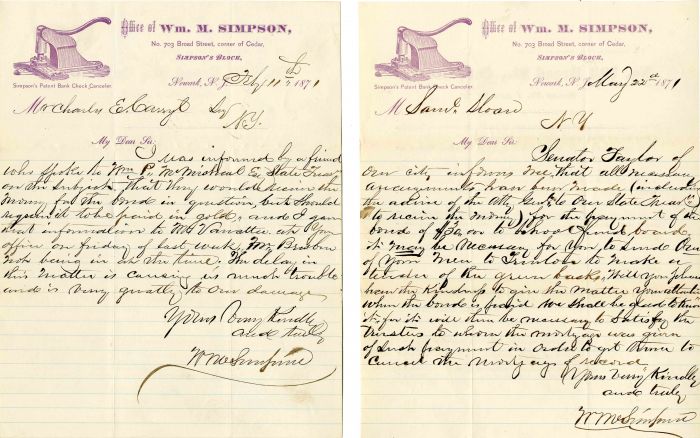 Office of Wm. M. SIMPSON,
No. 703 Broad Street, corner of Cedar,
SIMPSON'S BLOCK,
Simpson's Patent Bank Check Canceler.
Newark, N. J. Feby 11th 1871
Mr Charles E.
N.Y.
My Dear Sir
I was informed by a friend
who spoke to Wm P. McMichael Ex State Treas
on the subject, that they would receive the
money for the bond in question, but should
be paid in gold, and I gave
that information to Mr Vanatta at your
office on friday of last week, Mr
not being in at the time. The delay in
this matter is causing us much trouble
and is very greatly to our damage
Yours Very Kindly
and truly
Wm M Simpson
Office of Wm. M. SIMPSON,
No. 703 Broad Street, corner of Cedar,
SIMPSON'S BLOCK,
Simpson's Patent Bank Check Canceler.
Newark, N. J. May 22nd 1871
M Saml Sloan
N Y
My Dear Sir
Senator Taylor of
our city informs me that all necessary
arrangements have been made (including
the advice of the Atty Genl to our State Treas
to receive the money) for the payment of the
bond of to School fund board,
it may be necessary for you to send one
of your men to Trenton to make a
tender of the green backs, Will you please
have the kindness to give the matter your attention
When the bond is paid we shall be glad to know
it, for it will then be necessary to satisfy the
trustees to whom the mortgage was given
of such payment in order to get them to
cancel the mortgage of record
Yours Very Kindly
and truly
Wm M Simpson